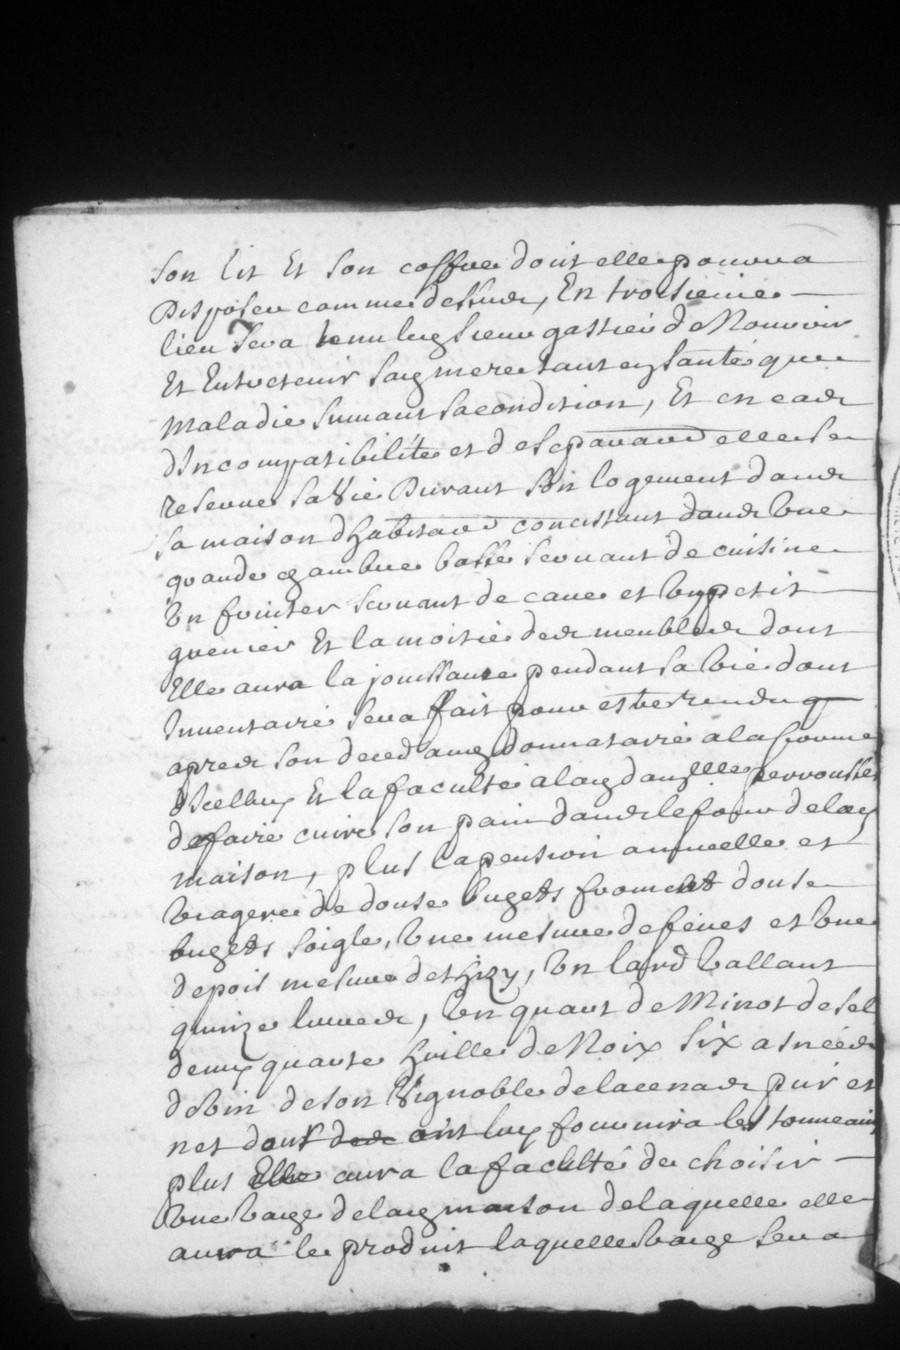 son lit Et son coffre dont elle pourra
Disposer comme dessus, En troisieme
lieu sera tenu led sieur gastier de Nourrir
Et Entretenir sad mere tant en santé que
maladie suivant sa condition, Et en cas
dIncompatibilité et de separaon elle se
reserve sa vie Durant son logement dans
sa maison dhabitaon concistant dans Une
grande chambre basse servant de cuisine
Un fruitier servant de cave et Un petit
grenier Et la moitié des meubles dont
Elle aura la jouissance pendant sa vie dont
Inventaire sera fait pour estre rendu
apres son deced aud donnataire a la forme
dIcelluy Et la faculté a lad dauzelle perrousse
de faire cuire son pain dans le four de lad
maison, plus la pension annuelle et
viagere de douse bugets froment douse
bugets soigle, Une mesure de feves et Une
de pois mesure de Lizy, Un lard Vallant
quinze livres, Un quart de Minot de sel
deux quarte huille de Noix six asnées
de Vin de son Vignoble de la cenas pur et
net dont on luy fournira les tonneaux
plus Elle aura la faculté de choisir
Une Vache de lad maison de laquelle elle
aura le produit laquelle Vache sera